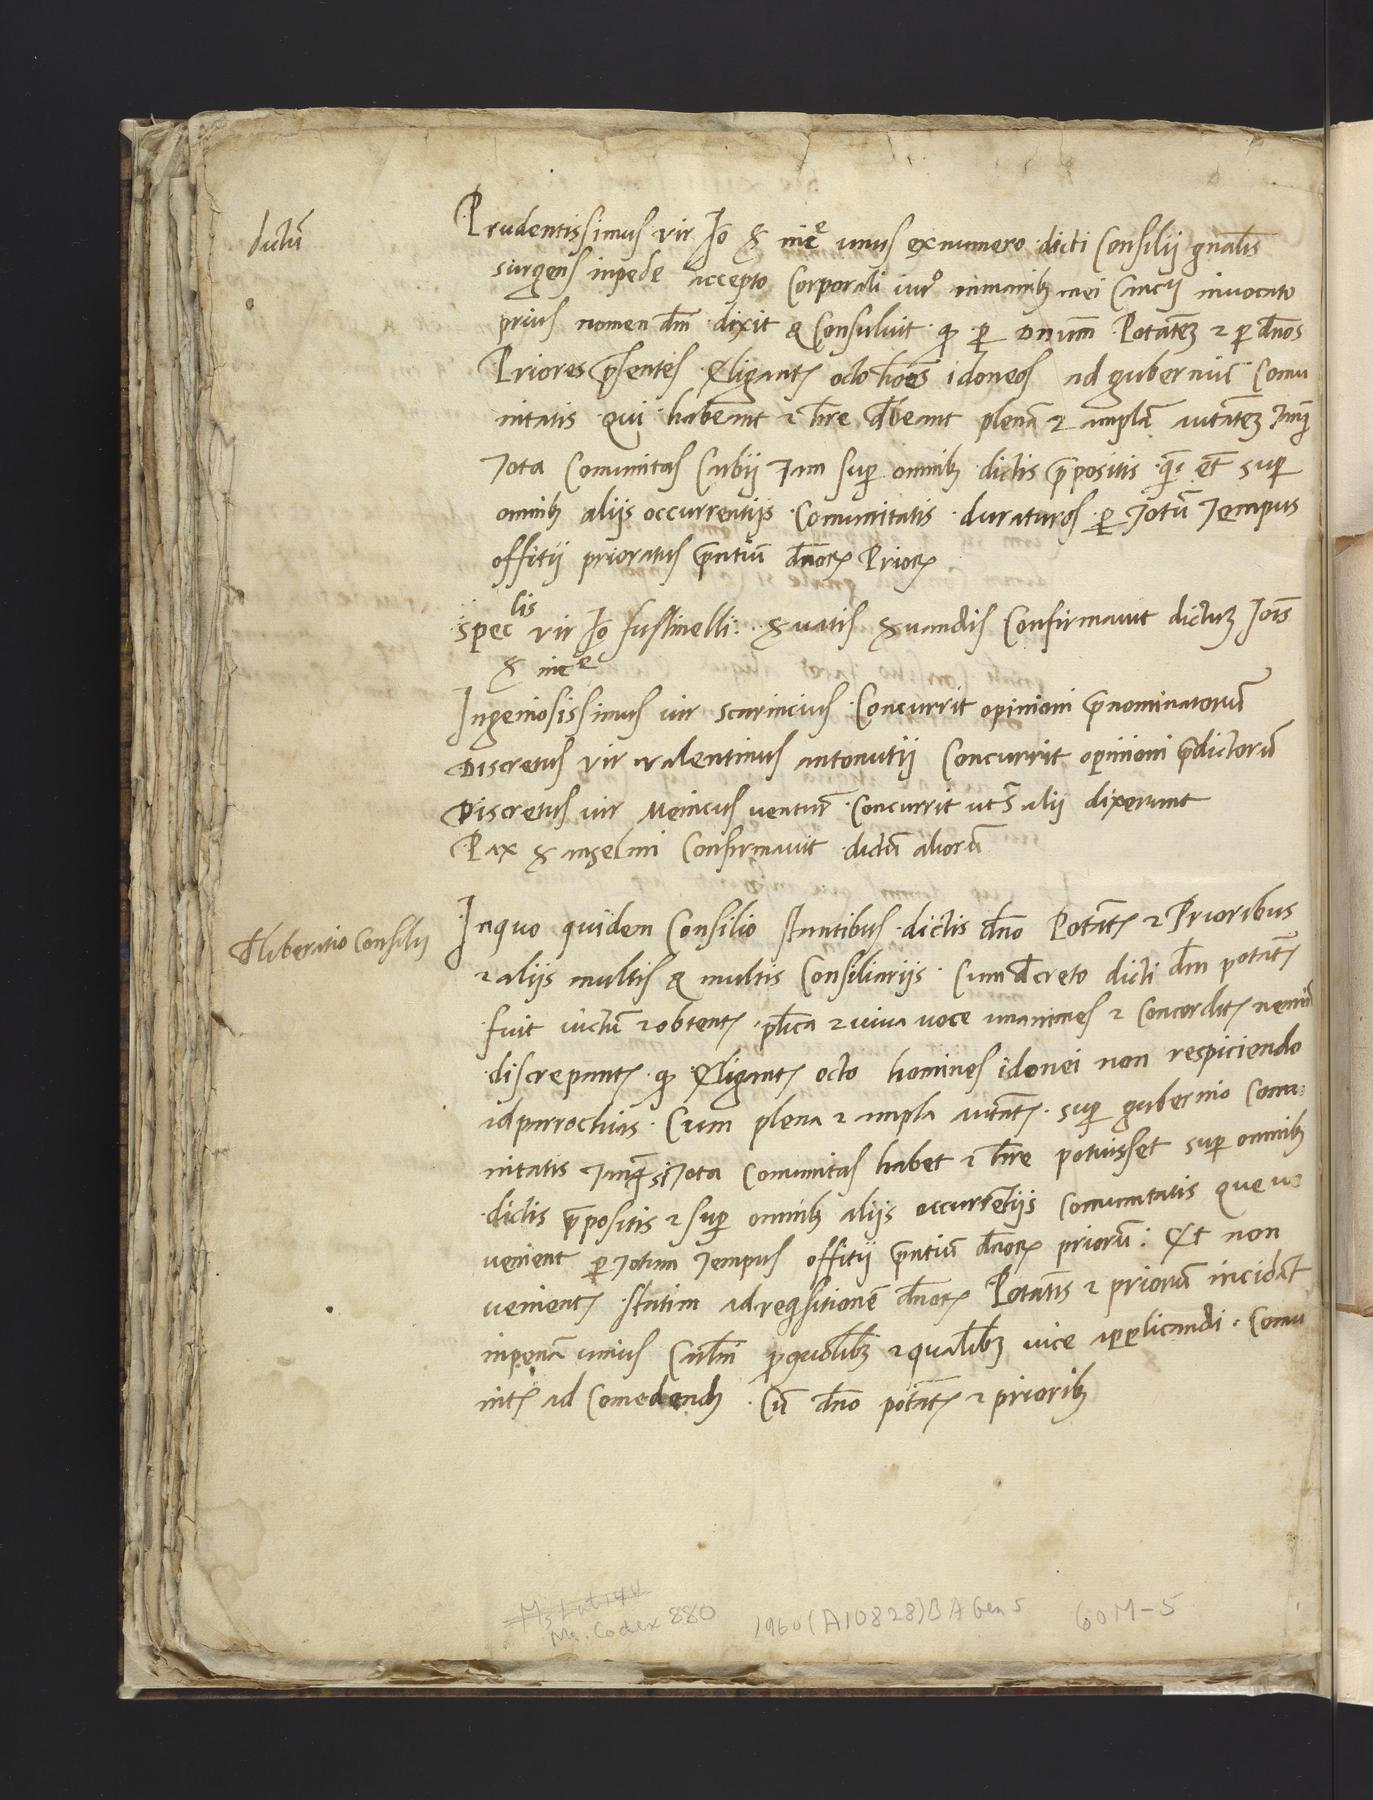 dictū
Prudentissimus vir Jo &  unus ex numero dicti Consilij gn̄alis
surgens inpede accepto Corporali iur̄o inmanib; mei Cancr̄ij invocato
prius nomen dn̄i dixit & Consuluit qp̄ p̄ Dnum Potatē; & p̄ dn̄os
Priores p̄sentes Eligant̄ octo hoēs idoneos ad guberniū Comu
nitatis qui habeant & hr̄e debeant plenā & amplā autātē;
tota Comunitas Eubij tam sup̄ omnib; dictis p̄positis  et̄ sup̄
omnib; alijs occurrentijs Comunitatis duraturos p̄ totū tempus
offitij prioratus p̄ntiū dn̄or̄ Prior̄
speclis vir Jo fustinelli  Confirmavit dictu; Jois
Ingeniosissimus vir  Concurrit opinioni p̄nominatorū
Discretus vir valentinus antonutij Concurrit opinioni p̄dictorū
Discretus vir Meincus ventur̄ Concurrit ut s̄ alij dixerunt
Pax & anselmi Confirmavit dictū aliorū
Dliberatio Consilij
Inquo quidem Consilio stantibus dictis dn̄o Potāt̄ & Prioribus
& alijs multis & multis Consiliarijs Cum decreto dicti dn̄i potāt̄
fuit victū & obtent̄ pl̄ica & viva voce unanimes & Concordit̄ nemin̄
discrepant̄ qp̄ Eligant̄ octo homines idonei non respiciendo
ad parrochias Cum plena & ampla autāt̄ sup̄ gubernio Comu
nitatis tanq̄ si tota Comunitas habet & hr̄e potuisset sup̄ omnib;
dictis p̄positis & sup̄ omnib; alijs occurrētijs Comunitatis que
venient p̄ totum tempus offitij p̄ntiū dn̄or̄ priorū: Et non
venient̄ statim ad reqsitionē dn̄or̄ Potātis & priorum incidāt
inpenā unius Carlini p̄ quolib; & qualib; vice applicandi Comu
nit̄ ad Comedend; Cū dn̄o potāt̄ & priorib;
Ms Lat 144
Ms. Codex 880
1960 (A10828) B A Gen 5
60M-5